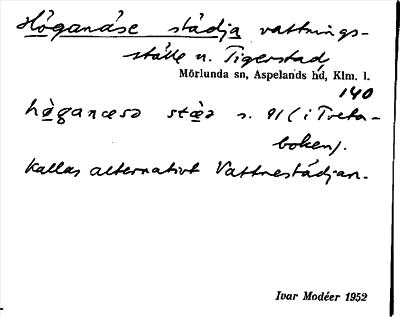 Höganäse städja vattnings-
ställe n. Tigerstad
Mörlunda sn, Aspelands hd, Klm. l.
140
stæ̀ə s. 91 (i Tveta-
boken).
Kallas alternativt Vattnestädjan.
Ivar Modéer 1952